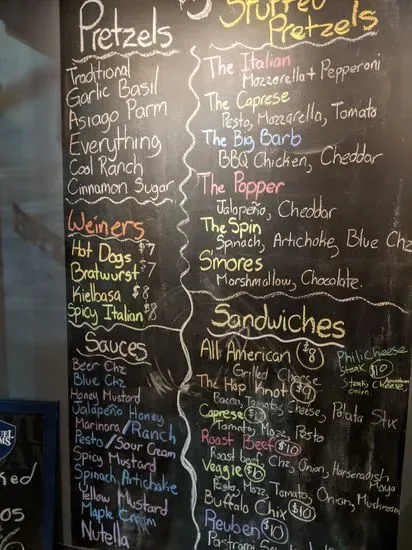 Pretzels
Traditional
Garlic Basil
Asiago Parm
Everything
Cool Ranch
Cinnamon Sugar
Weiners
Hot Dogs $7
Bratwurst $7
Kielbasa $8
Spicy Italian $8
Sauces
Beer Chz
Blue Chz
Honey Mustard
Jalapeño Honey
Marinara/Ranch
Pesto/Sour Cream
Spicy Mustard
Spinach Artichoke
Yellow Mustard
Maple Cream
Nutella
Stuffed
Pretzels
The Italian
Mozzarella + Pepperoni
The Caprese
Pesto, Mozzarella, Tomato
The Big Barb
BBQ Chicken, Cheddar
The Popper
Jalapeño, Cheddar
The Spin
Spinach, Artichoke, Blue Chz
S'mores
Marshmallow, Chocolate.
Sandwiches
All American $8
Grilled Cheese
The Hap Knot $9
Bacon, Tomato, Cheese, Potata Stix
Caprese $10
Tomato, Mozz, Pesto
Roast Beef $10
Roast beef, Chz, Onion, Horseradish
Mayo
Veggie $10
Pesto, Moz, Tomato, Onion, Mushroom
Buffalo Chix $10
Reuben $10
Pastrami
Phili cheese
Steak $10
Steak, Cheese,
onion
ked
os